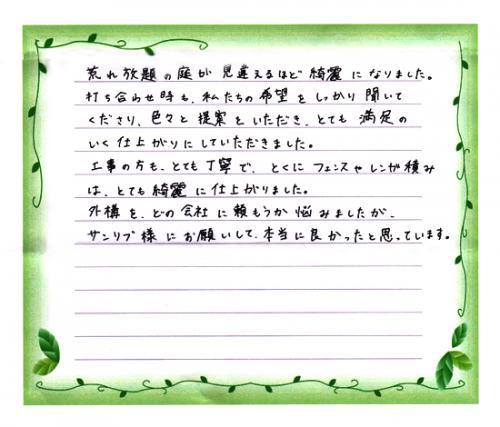 荒れ放題の庭が見違えるほど綺麗になりました。
打ち合わせ時も、私たちの希望をしっかり聞いて
くださり、色々と提案をいただき、とても満足の
いく仕上がりにしていただきました。
工事の方も、とても丁寧で、とくにフェンスやレンガ積み
は、とても綺麗に仕上がりました。
外構を、どの会社に頼もうか悩みましたが、
サンリブ様にお願いして、本当に良かったと思っています。